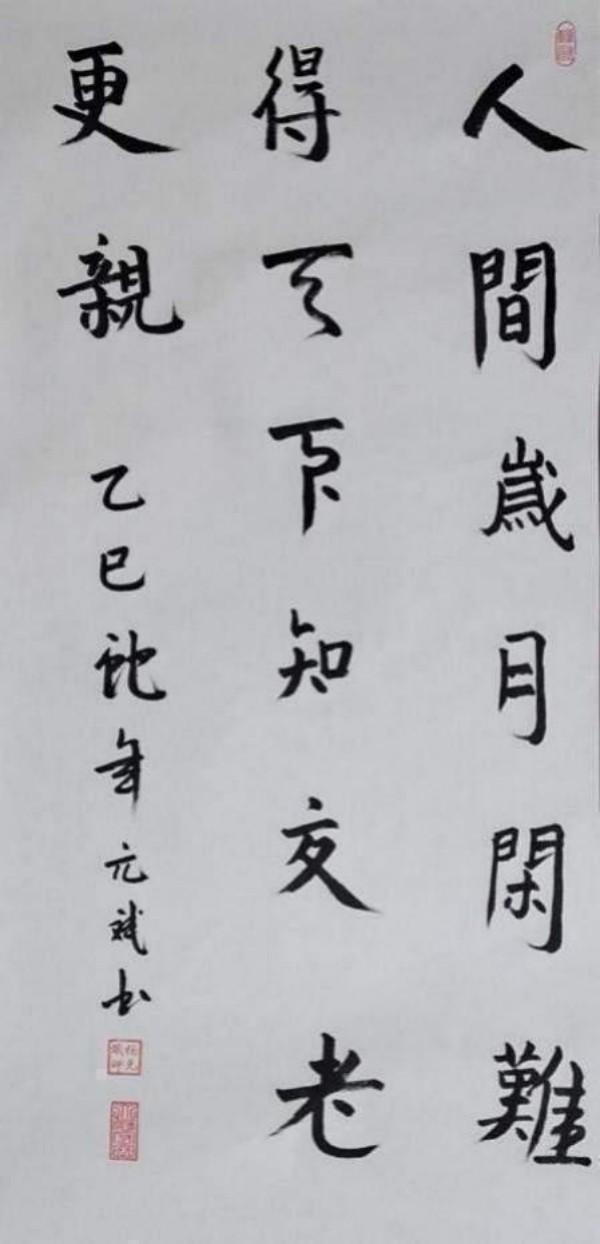 人間歲月閑難
得天下知交老
更親 乙巳蛇年元斌书